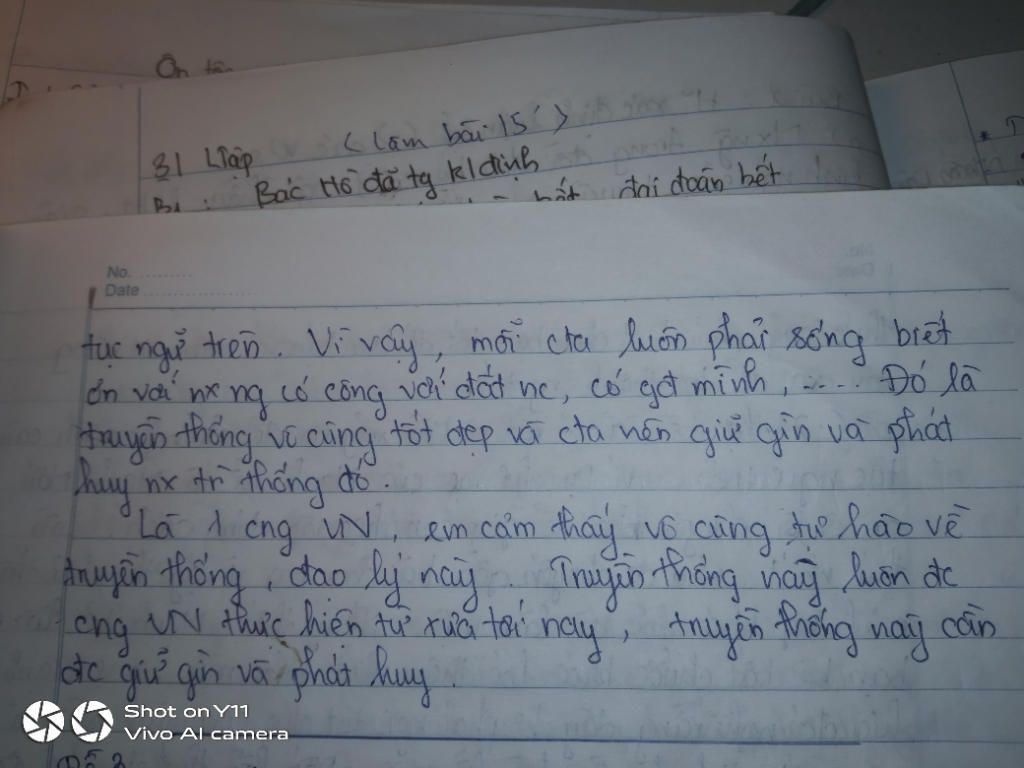 Ôn
3/ LTập (làm bài 15')
B1: Bác Hồ đã tg kđ định
bết đại đoàn bết
No.
Date
tục ngữ trên. Vì vậy, mỗi cta luôn phải sống biết
ơn với nx ng có công với đất nc, có gđ mình, .... Đó là
truyền thống vô cùng tốt đẹp và cta nên giữ gìn và phát
huy nx tr thống đó.
Là 1 cng VN, em cảm thấy vô cùng tự hào về
truyền thống, đạo lý này. Truyền thống này luôn đc
cng VN thực hiện từ xưa tới nay, truyền thống này cần
đc giữ gìn và phát huy.
Shot on Y11
Vivo AI camera